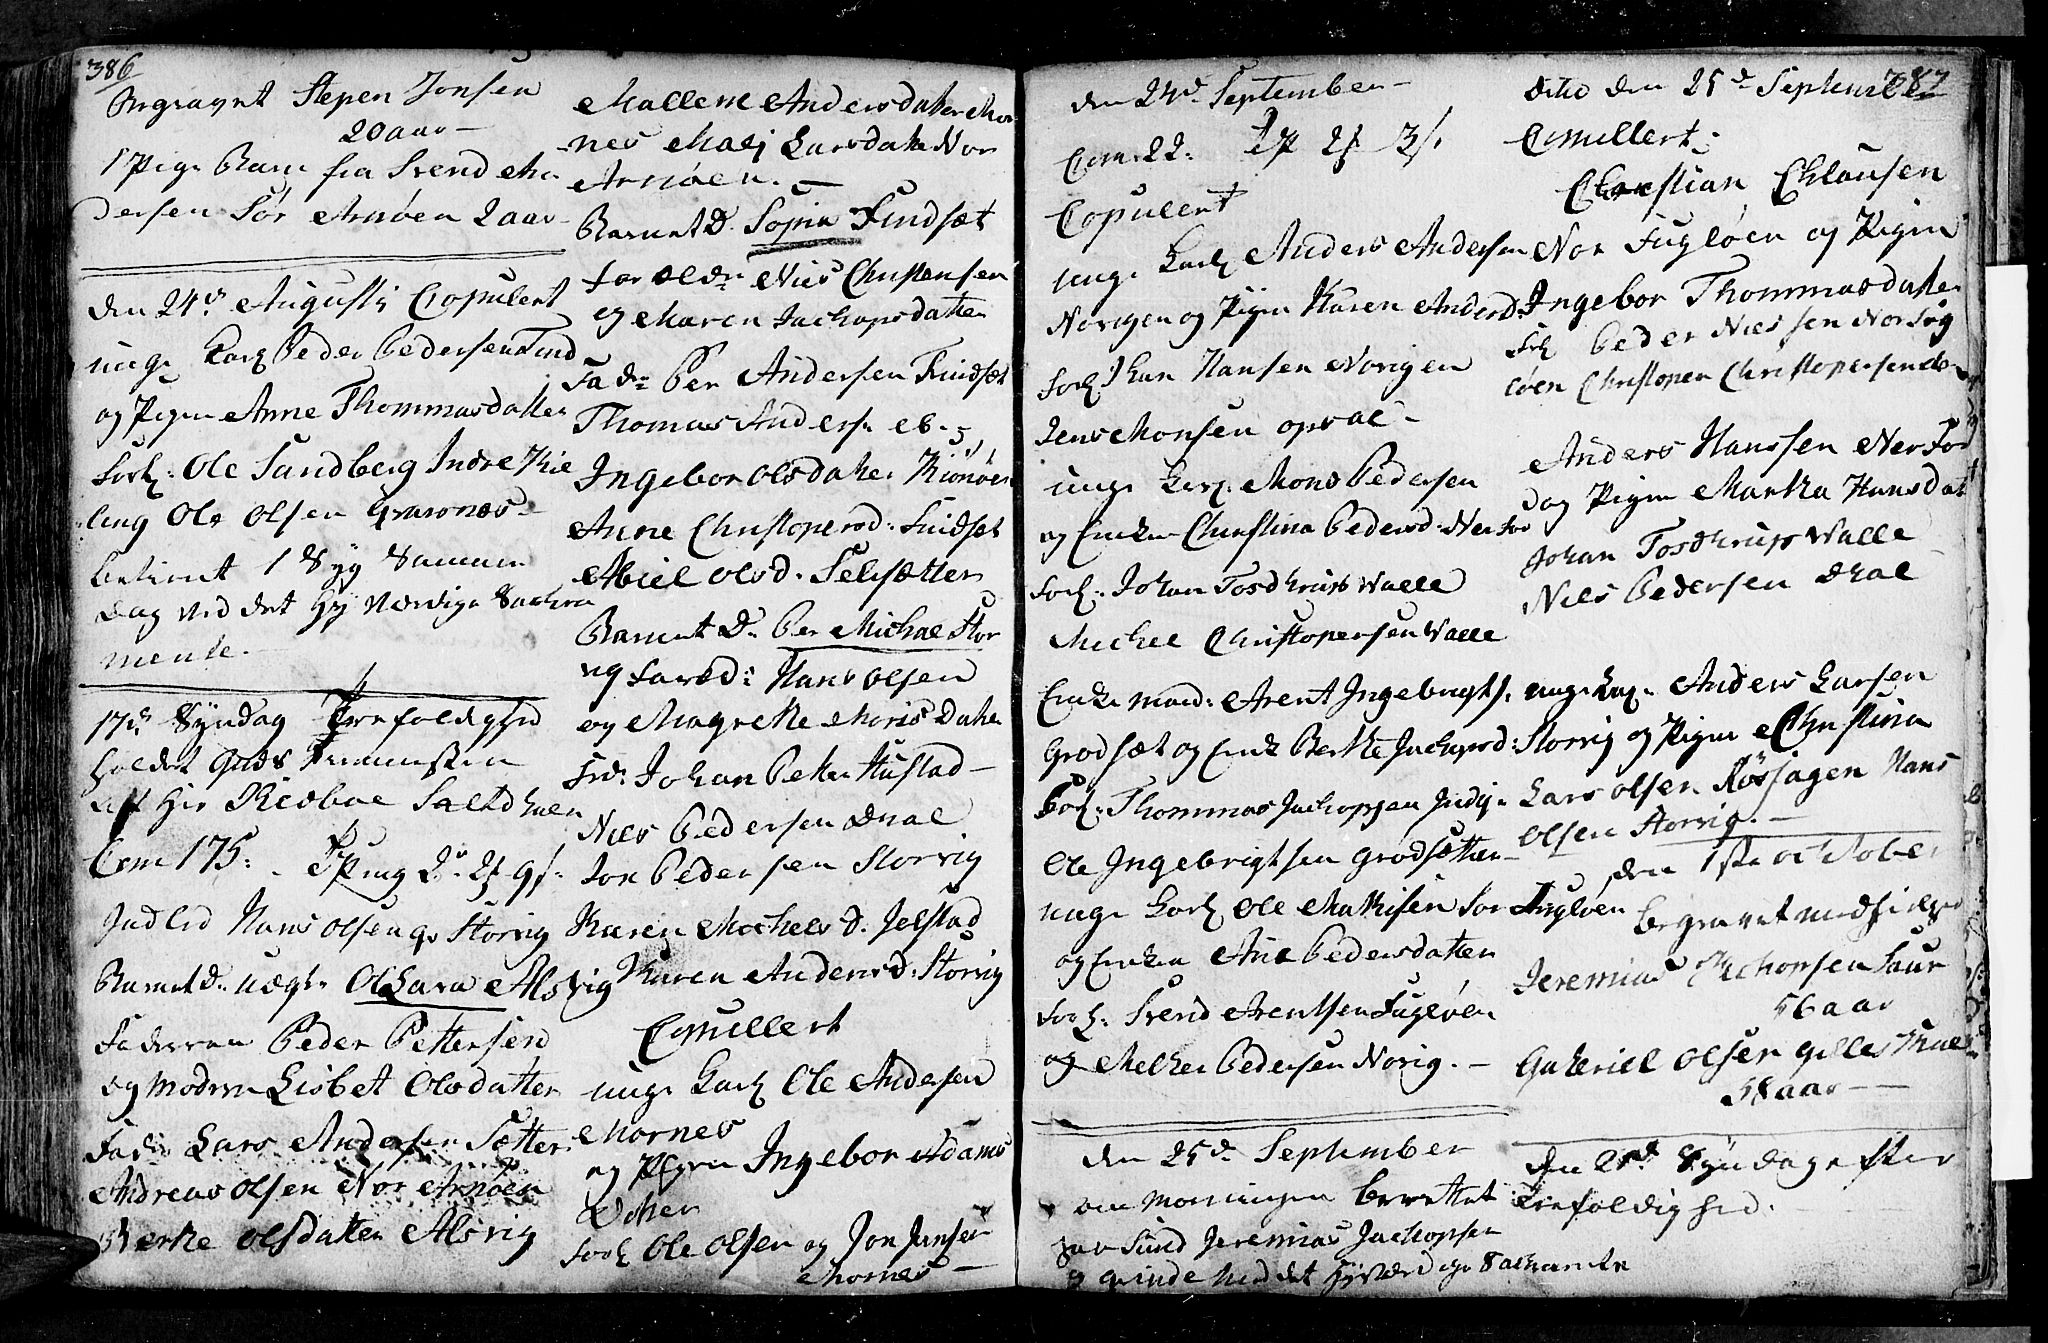 386
Begravet Stepen Jonsen
20 aar
1 Pige Barn fra Svend An
dersen Sør Arnøen 2 aar
den 24de Augusti Copulert
unge Karl Peder Pedersen Find
og Pigen Anne Thommasdatter
Forl: Ole Sandberg Indre Kie
ling Ole Olsen Grasnæs
betient 1 Syg Samme
Dag med det Hy Værdige Sachra
mente.
17de Syndag Trefoldighed
holdet Guds Tienneste
Com 175:
Indled Hans Olsen qv Storvig
Barnet D. uægte Ol Sara Alsvig
Faderen Peder Pettersen
og Moderen Lisbet Olsdatter
Fad: Lars Andersen Sætter
Andreas Olsen Nor Arnøen
Berte Olsdatter Alsvig
Mallene Andersdatter Mor
nes Marj Larsdatter Nor
Arnøen.
Barnet D. Sopia Findsæt
Forældr Nies Christensen
og Maren Jachopsdatter
Fadr Per Andersen Findsæt
Thomas Anders eb.
Ingebor Olsdatter Kiønøen
Anne Christopersd: Findsæt
Abiel Olsd. Selsætter
Barnet D. Per Michal Stor
vig Foræld: Hans Olsen
og Magrethe Moris Datter
Fad: Johan Petter Hustad
Niels Pedersen Dual
Jon Pedersen Storvig
Karen Mochels D. Jelstad
Karen Andersd: Storvig
Comillert
unge Karl Ole Andersen
Mornes
og Pigen Ingebor Adams
Datter
Forl Ole Olsen og Jon Jensen
Mornes
387
den 24d. September
Com: 22.
Copulert
unge Karl Anders Andersen
Norigen og Pigen Karen Andersd:
Forl Johan Hansen Norigen
Jens Monsen opsal
unge Karl. Mons Pedersen
og Encken Christina Pedersd. Ner For
Forl. Johan Tosthrup Walle
Michel Christopersen Walle
Encke mand: Arent Ingebrigts.
Grodsæt og Enck Berthe Jachopsd:
Forl: Thommas Jachopsen Indij
Ole Ingebrigtsen Grodsætter
unge Karl Ole Mathisen Sor Fugløen
og Encken Ane Pedersdatter
Forl. Svend Arentsen Fugløen
og Melker Pedersen Norig.
den 25d. September
om Morningen berettet
paa Sund Jeremias Jachopsen
q qvinde Med det Hyværdige Sachramente
dito den 25d September
Comillert
Christian Chlausen
Nor Fugløen og Pigen
Ingebor Thommasdatter
Forl Peder Nielsen Nor Fug
løen Christopen Christopersen
Anders Hanssen Ner For
og Pigen Martha Hansdat
Johan Tosthrup Walle
Niels Pedersen Dual
unge Karl. Anders Larsen
Storvig og Pigen Christina
Lars Olsen Røssagen Hans
Olsen Storvig.
den 1ste October
Begravet
Jeremias Jachopsen Saur
56 aar
Gabriel Olsen
58 aar
Syndag efter
Trefoldighed.